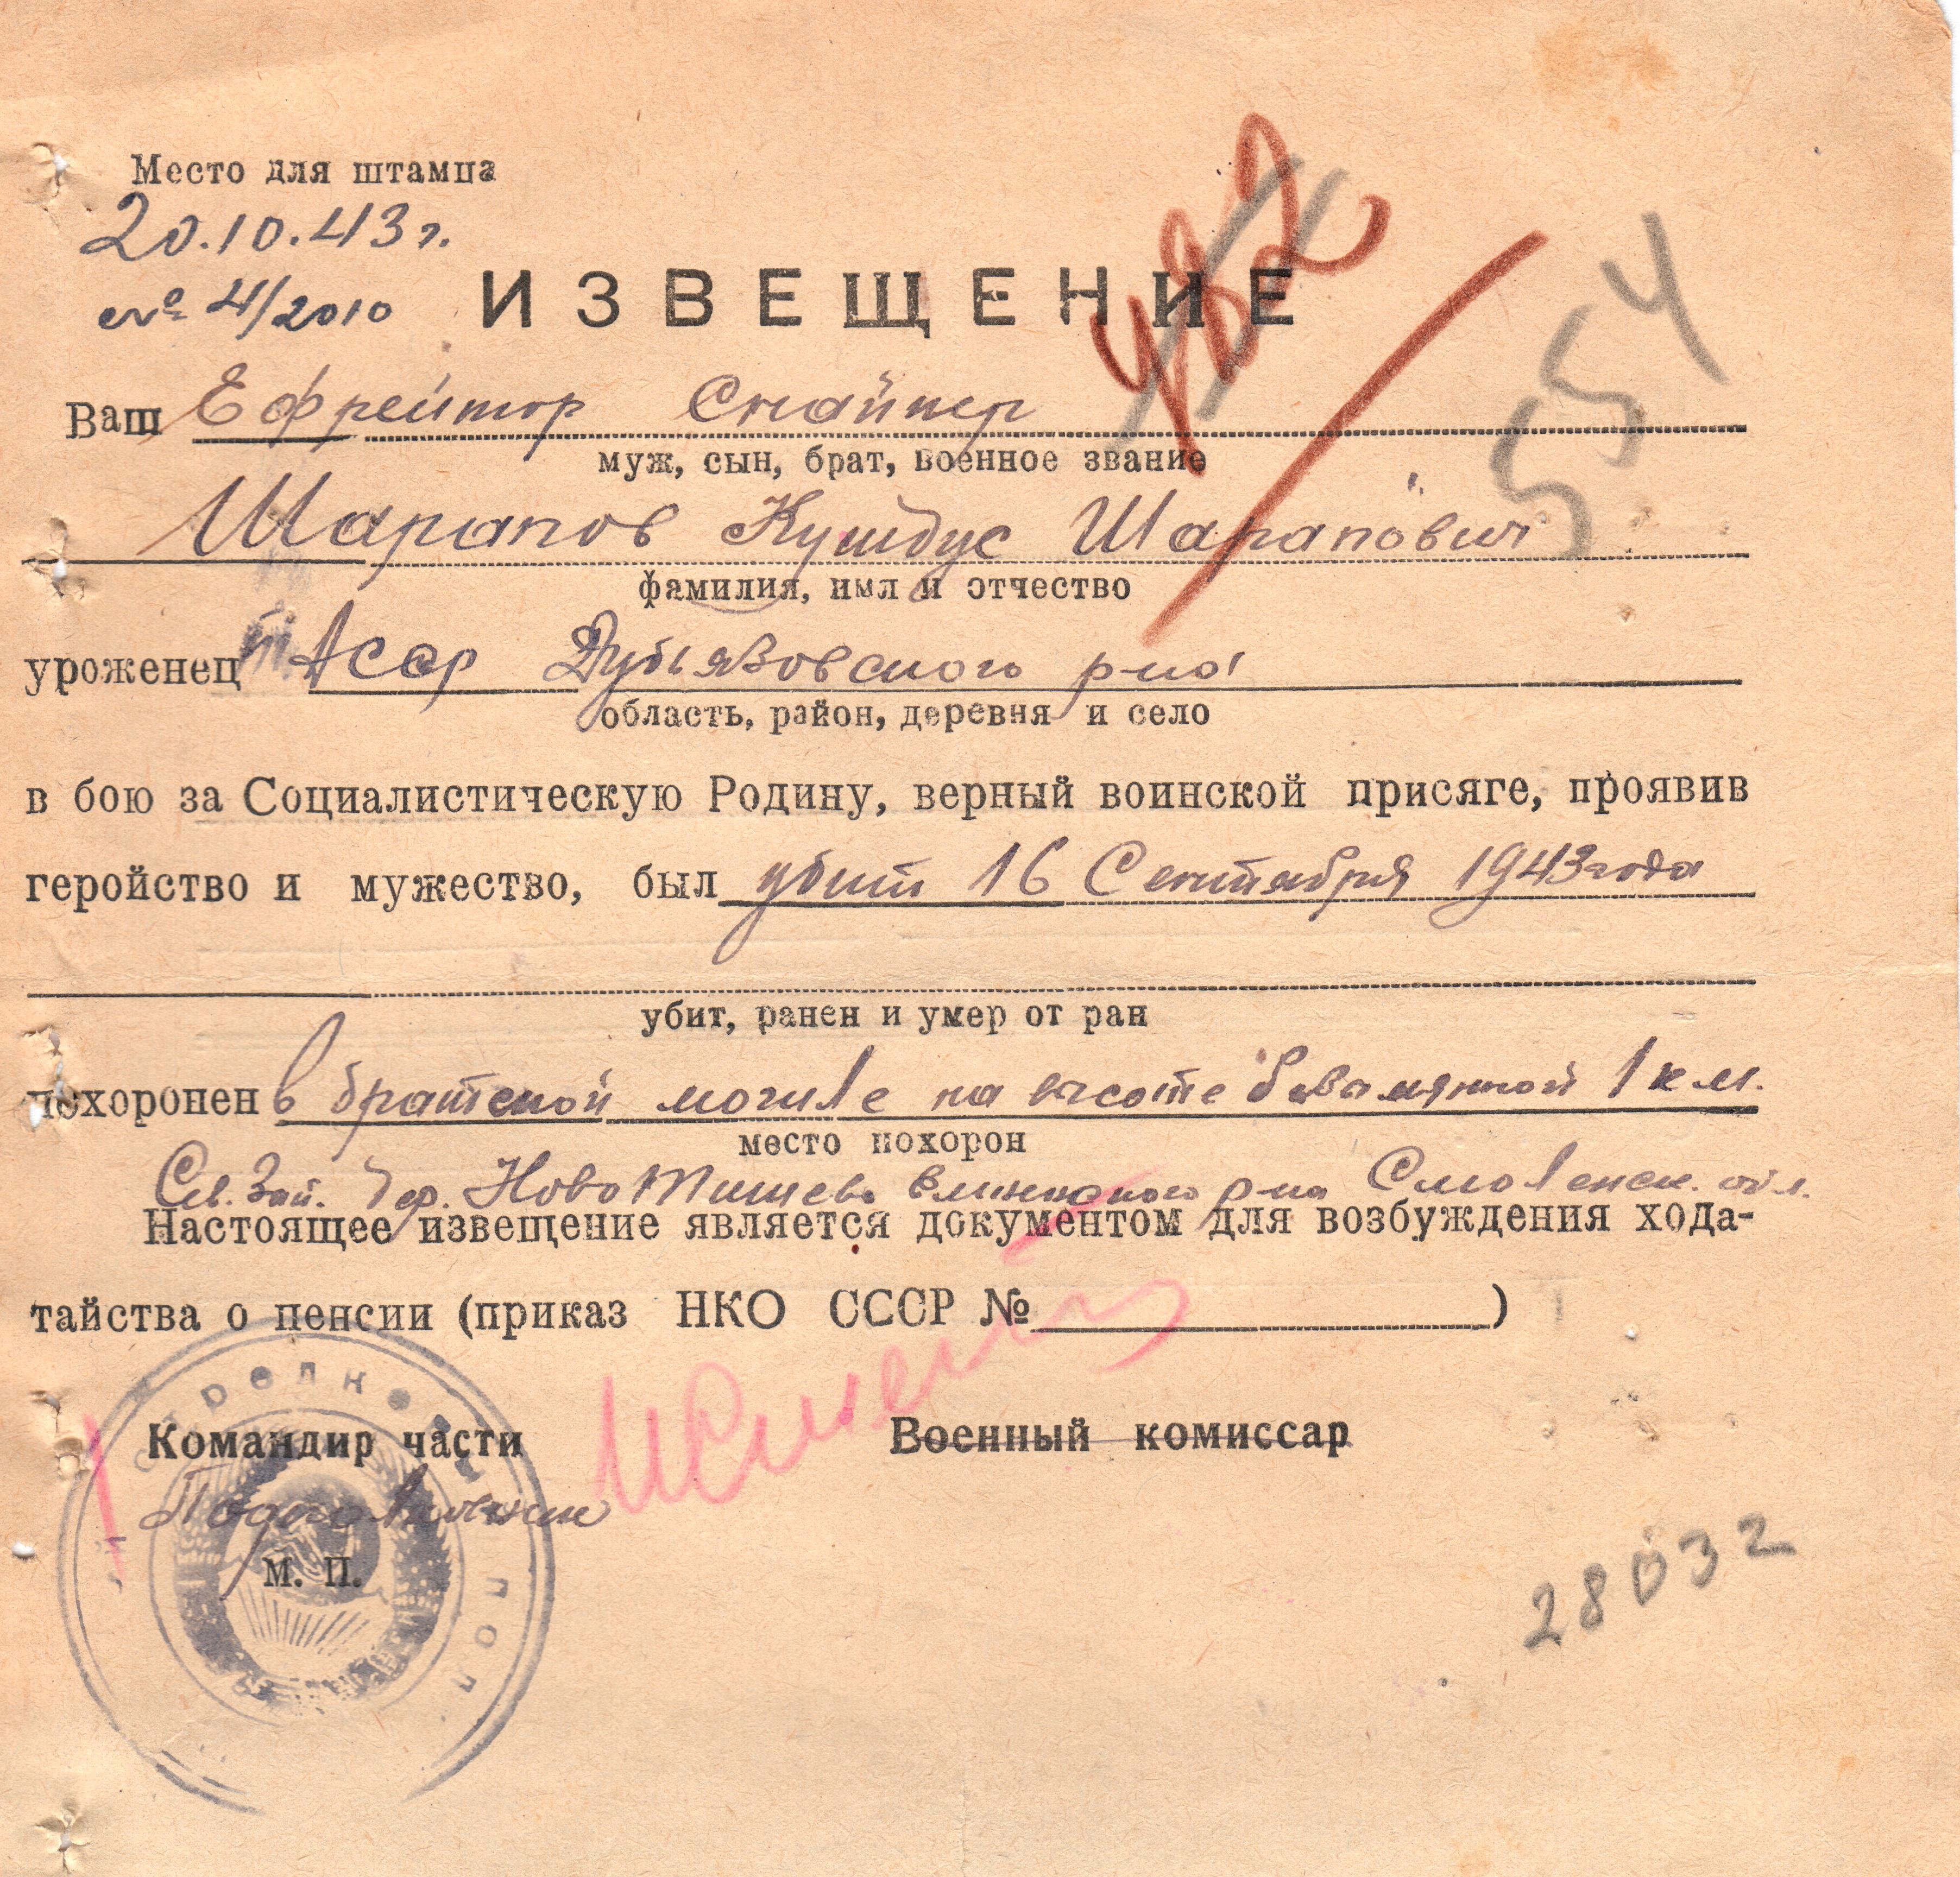 Место для штампа
20.10.43 г.
№ 4/2010
ИЗВЕЩЕНИЕ
482
554
Ваш Ефрейтор Снайпер
муж, сын, брат, военное звание
Шарапов Кушдус Шарапович
фамилия, имя и отчество
уроженец Т. Асср Дубьязовского р-на
область, район, деревня и село
в бою за Социалистическую Родину, верный воинской присяге, проявив
геройство и мужество, был убит 16 Сентября 1943 года
убит, ранен и умер от ран
похоронен в братской могиле на высоте безымянной 1 км.
место похорон
Сев. Зап. дер. Ново Тишево Ельнинского р-на Смоленск. обл.
Настоящее извещение является документом для возбуждения хода-
тайства о пенсии (приказ НКО СССР № )
Командир части Военный комиссар
Подполковник
М. П.
28032